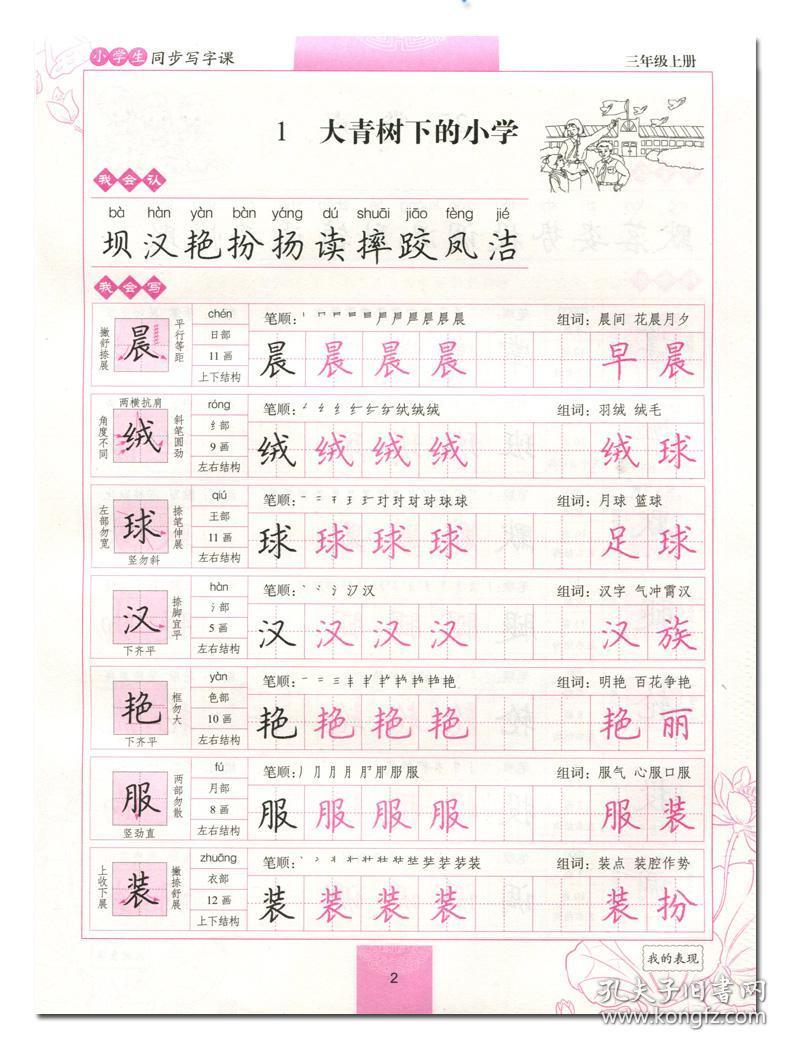 小学生 同步写字课 三年级上册
1 大青树下的小学
我会认
bà hàn yàn bàn yáng dú shuāi jiāo fèng jié
坝 汉 艳 扮 扬 读 摔 跤 凤 洁
我会写
撇舒捺展 晨 平行等距
chén
日部
11画
上下结构
笔顺： 组词：晨间 花晨月夕
晨 晨 晨 晨 早 晨
两横抗肩
角度不同 绒 斜笔圆劲
róng
纟部
9画
左右结构
笔顺： 组词：羽绒 绒毛
绒 绒 绒 绒 绒 球
左部勿宽 球 捺笔伸展
竖勿斜
qiú
王部
11画
左右结构
笔顺： 组词：月球 篮球
球 球 球 球 足 球
汉 捺脚宜平
下齐平
hàn
氵部
5画
左右结构
笔顺： 组词：汉字 气冲霄汉
汉 汉 汉 汉 汉 族
艳 框勿大
下齐平
yàn
色部
10画
左右结构
笔顺： 组词：明艳 百花争艳
艳 艳 艳 艳 艳 丽
服 两部勿散
竖劲直
fú
月部
8画
左右结构
笔顺： 组词：服气 心服口服
服 服 服 服 服 装
上收下展 装 撇捺舒展
zhuāng
衣部
12画
上下结构
笔顺： 组词：装点 装腔作势
装 装 装 装 装 扮
我的表现
2
孔夫子旧书网
www.kongfz.com